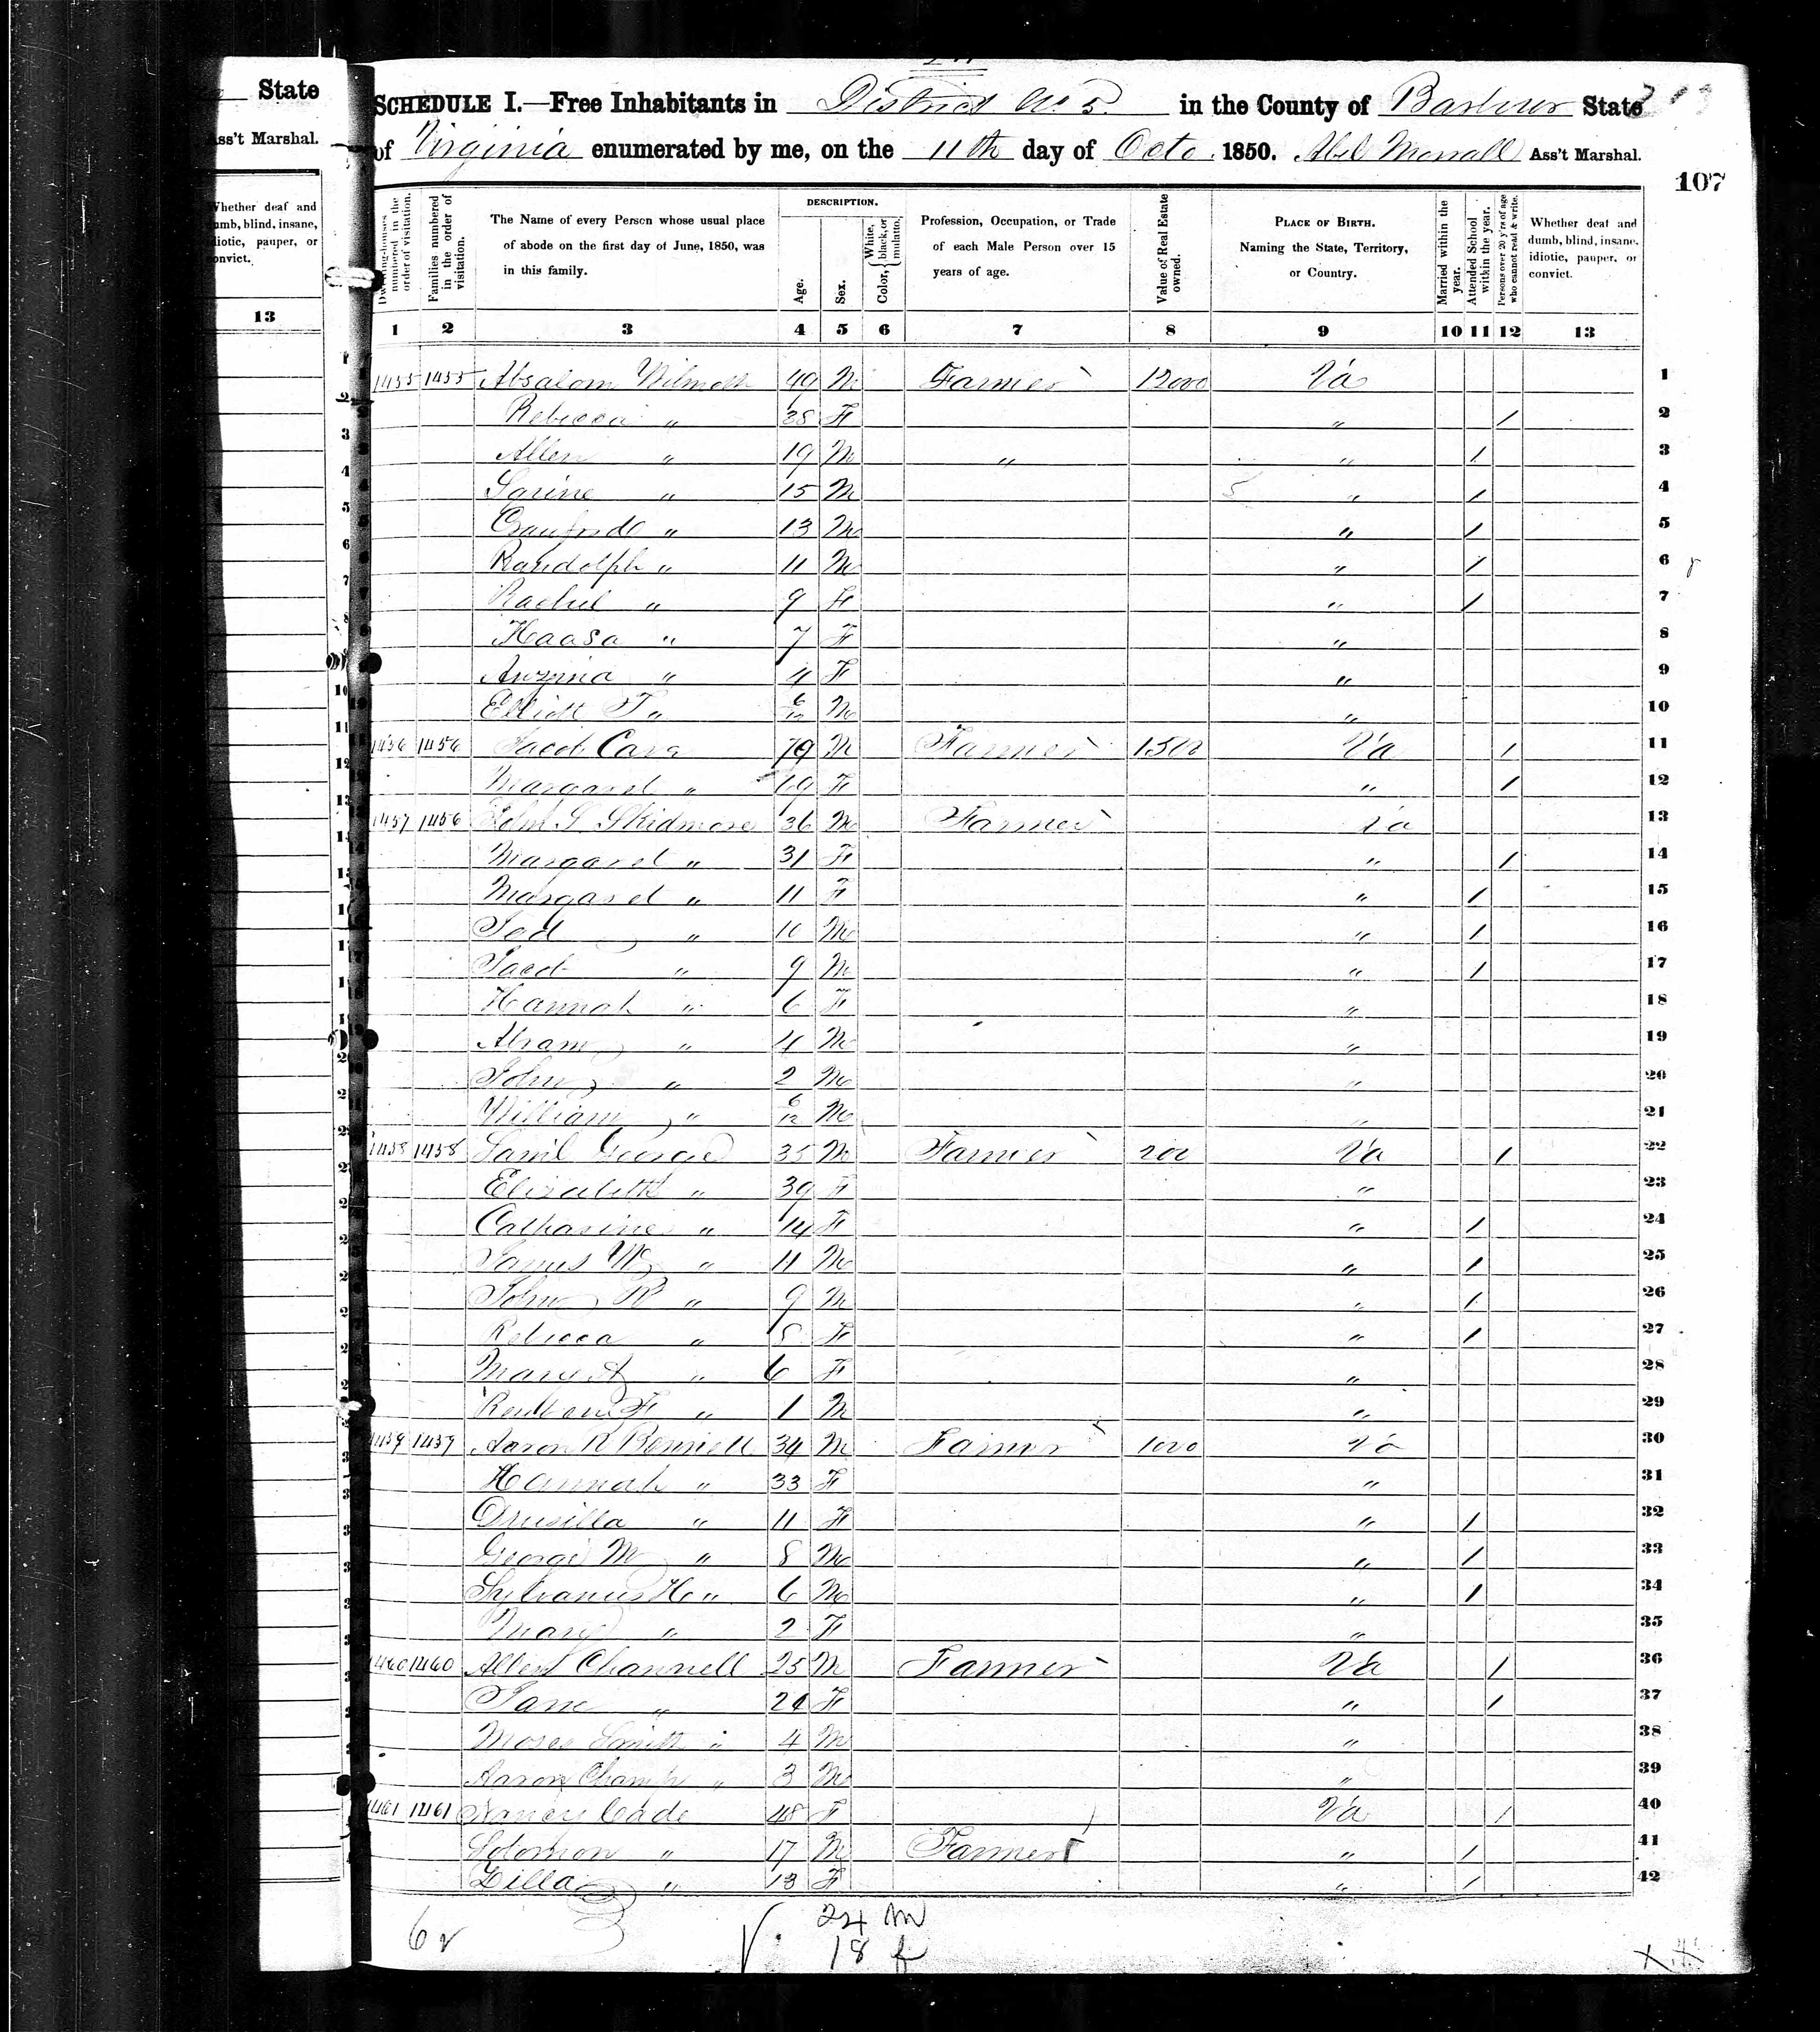 State
Ass't Marshal.
Whether deaf and
dumb, blind, insane,
idiotic, pauper, or
convict.
13
SCHEDULE I.—Free Inhabitants in District No 5. in the County of Barbour State
of Virginia enumerated by me, on the 11th day of Octo. 1850. Abel Morrall Ass't Marshal.
107
Dwelling-houses numbered in the order of visitation.
Families numbered in the order of visitation.
The Name of every Person whose usual place of abode on the first day of June, 1850, was in this family.
DESCRIPTION.
Age.
Sex.
Color, { White, black, or mulatto.
Profession, Occupation, or Trade of each Male Person over 15 years of age.
Value of Real Estate owned.
PLACE OF BIRTH.
Naming the State, Territory, or Country.
Married within the year.
Attended School within the year.
Persons over 20 y'rs of age who cannot read & write.
Whether deaf and dumb, blind, insane, idiotic, pauper, or convict.
1 2 3 4 5 6 7 8 9 10 11 12 13
1455 1455 Absalom Wilmoth 49 M Farmer 12000 Va 1
Rebecca " 38 F " / 2
Allen " 19 M " " / 3
" 15 M " / 4
Craufords " 13 M " / 5
Randolph " 11 M " / 6
Rachel " 9 F " / 7
Haasa " 7 F " 8
Arzina " 4 F " 9
Elliott T " 6/12 M " 10
1456 1456 Jacob Carr 79 M Farmer 1500 Va / 11
Margaret " 69 F " / 12
1457 1456 John S Skidmore 36 M Farmer Va 13
Margaret " 31 F " / 14
Margaret " 11 F " / 15
" 10 M " / 16
Jacob " 9 M " / 17
Hannah " 6 F " 18
Abram " 4 M " 19
John " 2 M " 20
William " 6/12 M " 21
1458 1458 Saml George 35 M Farmer 200 Va / 22
Elizabeth " 39 F " 23
Catharine " 14 F " / 24
James W " 11 M " / 25
John R " 9 M " / 26
Rebecca " 8 F " / 27
Mary A " 6 F " 28
Reuben F " 1 M " 29
1459 1459 Aaron R Bennett 34 M Farmer 1000 Va 30
Hannah " 33 F " 31
Drusilla " 11 F " / 32
George M " 8 M " / 33
Sylvanus H " 6 M " / 34
Mary " 2 F " 35
1460 1460 Allen Channell 25 M Farmer Va / 36
Jane " 24 F " / 37
Moses Smith " 4 M " 38
Aaron Champ " 3 M " 39
1461 1461 Nancy Cade 48 F Va / 40
Solomon " 17 M Farmer " / 41
Zilla " 13 F " / 42
24 M
18 f